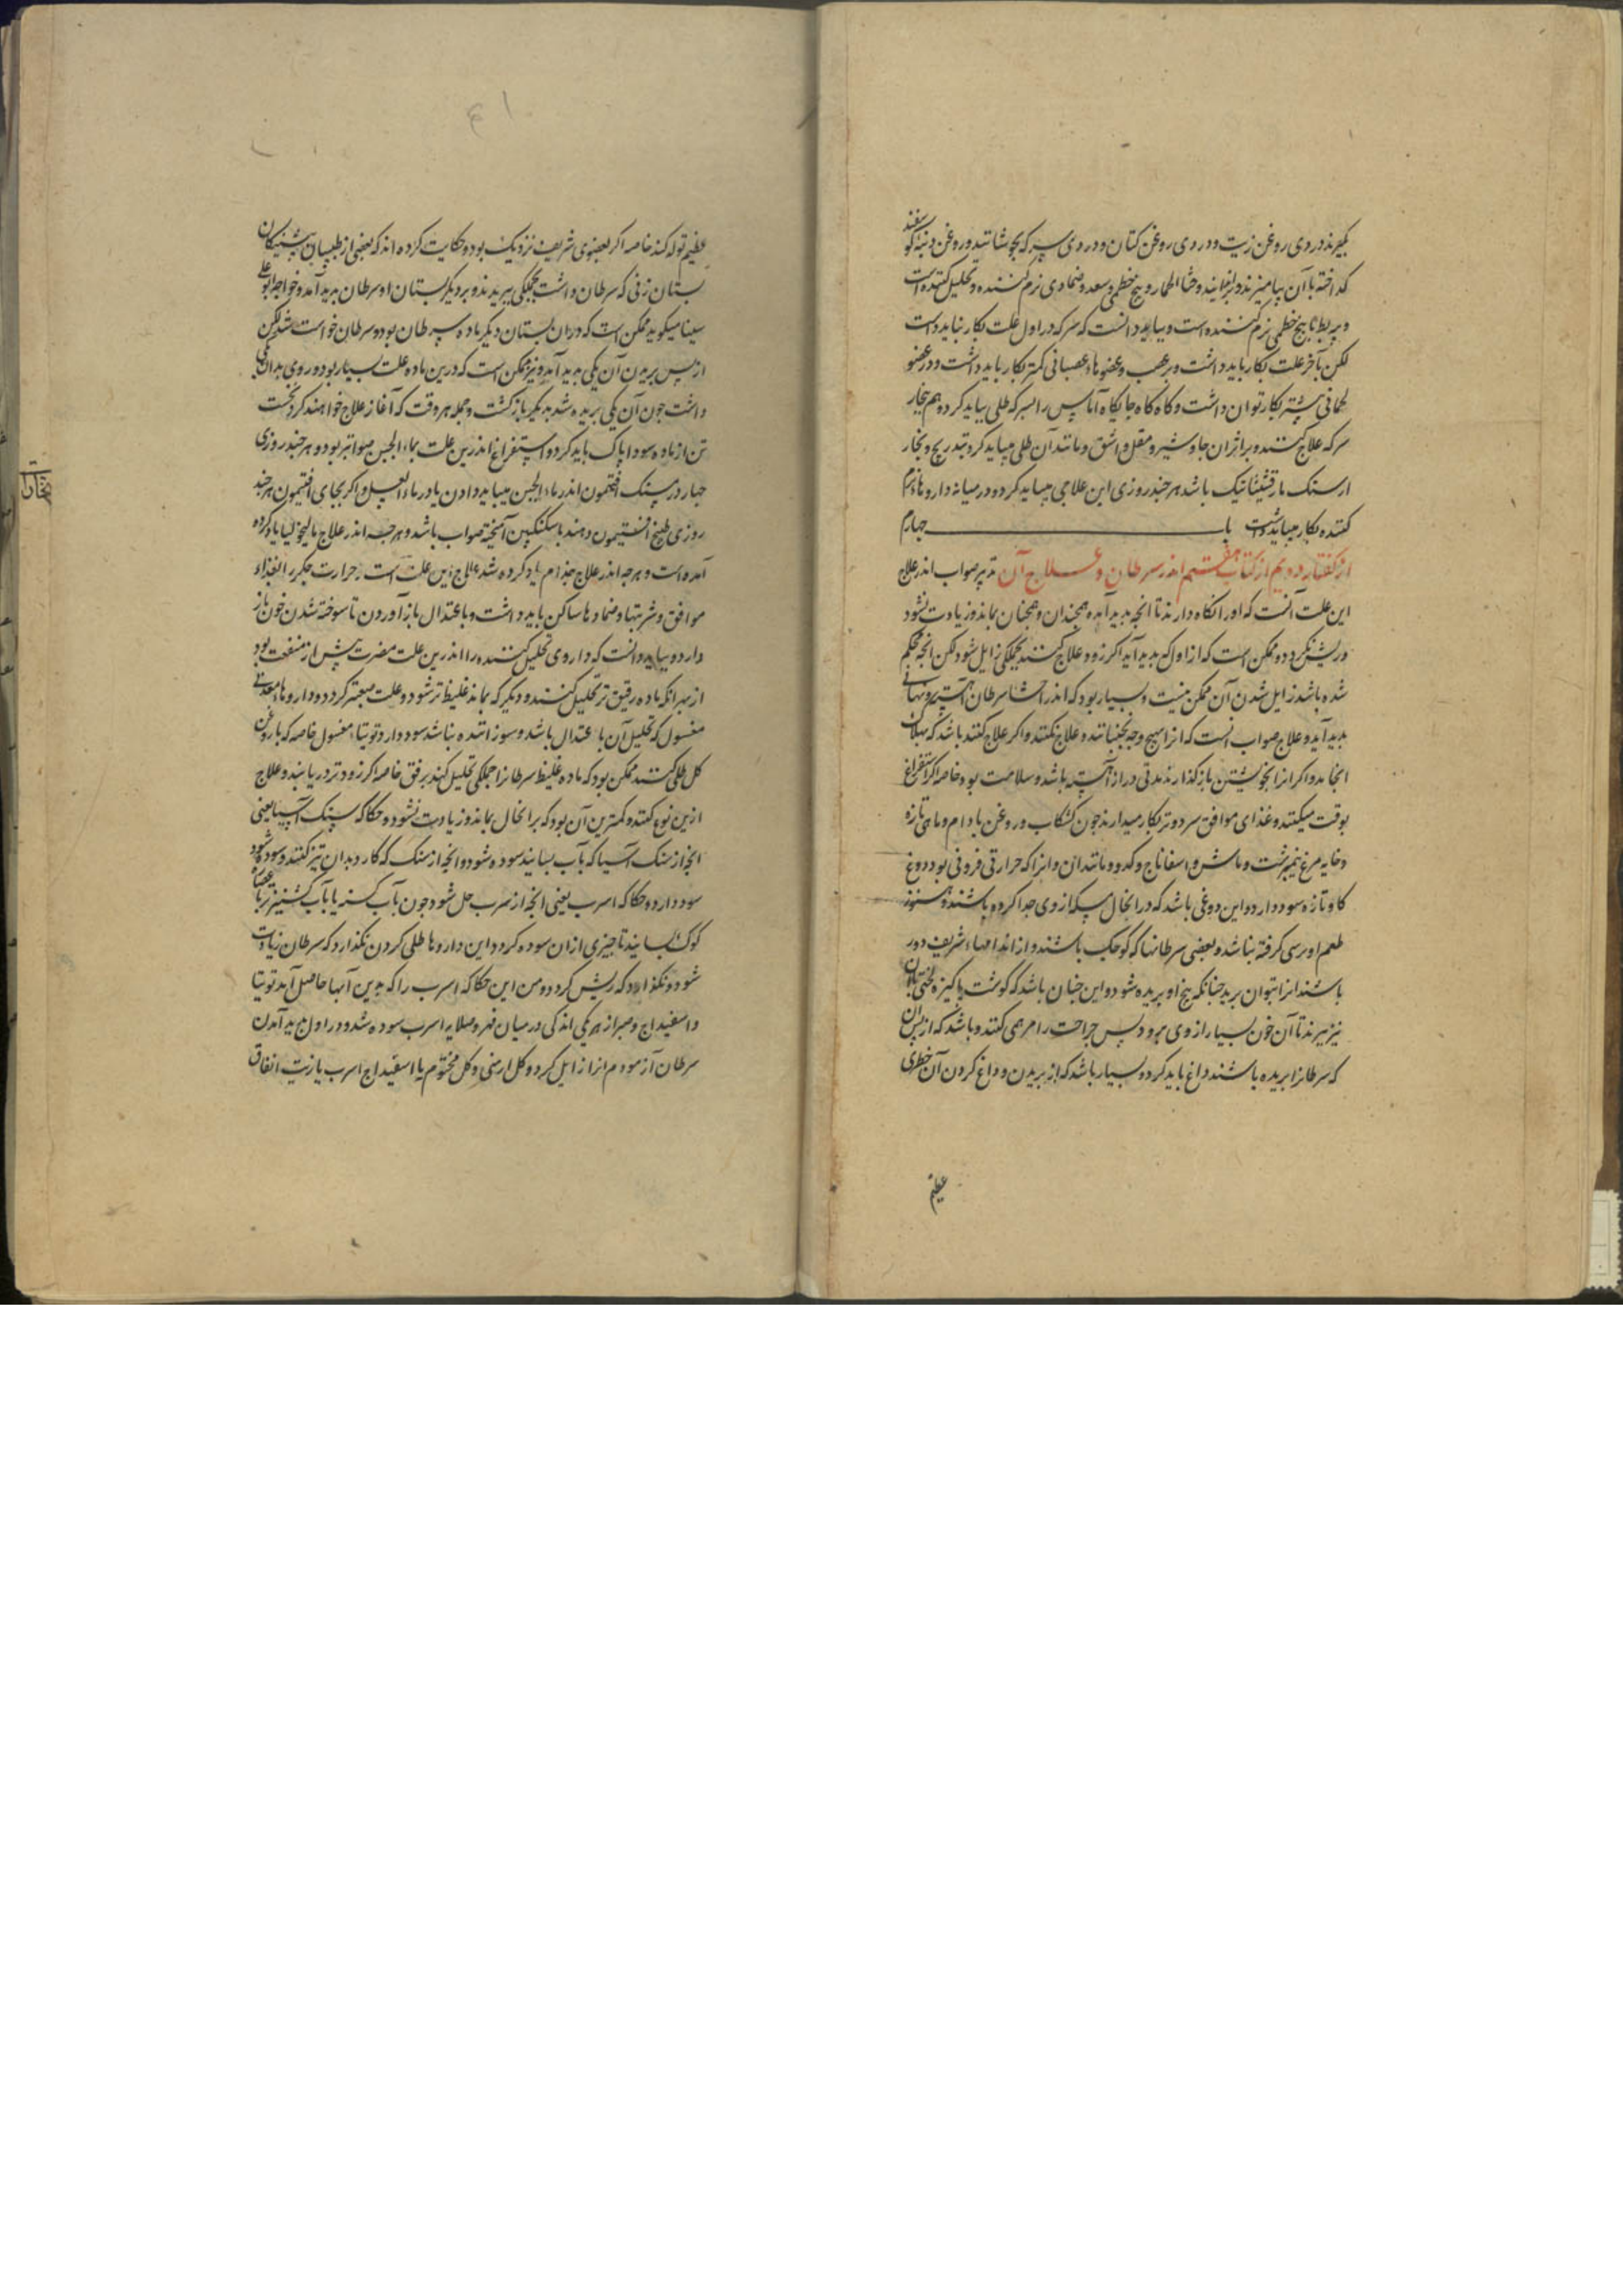 بگیرند دردی روغن زیت و دردی روغن کتان و دردی سرکه بجوشانید و روغن دنبه گوسفند
کداخته با آن بیامیزند و بر افزایند و قثاء الحمار و بیخ خطمی و سعد و ضمادی نرم کننده و تحلیل کننده است
و پیه بط با بیخ خطمی نرم کننده است و بباید دانست که سرکه در اول علت بکار نباید داشت
لکن بآخر علت بکار باید داشت و بر عصب و عضوهاء عصبانی کمتر بکار باید داشت و در عضو
لحمانی بیشتر بکار توان داشت و کاه کاه جایکاه آماس را بسرکه طلی بباید کرد و هم بخار
سرکه علاج کنند و بر اثر ان جاوشیر و مقل و اشق و مانند آن طلی میباید کرد بتدریج و بخار
از سنک مارقشیثا نیک باشد هر چند روزی این علاجی میباید کرد و در میانه داروهاء نرم
کننده بکار میباید داشت باب چهارم
از کفتار دویم از کتاب هفتم اندر سرطان و علاج آن تدبیر صواب اندر علاج
این علت آنست که اورا نکاه دارند تا آنچه بدید آمده همچندان و همچنان بماند و زیادت نشود
و ریش نکردد و ممکن است که از اول که بدید آید اکر زود علاج کنند بجملکی زایل شود لکن انچه محکم
شده باشد زایل شدن آن ممکن نیست و بسیار بود که اندر احشا سرطان آهسته و نهانی
بدید آید و علاج صواب آنست که انرا هیچ وجه نجنبانند و علاج نکنند و اکر علاج کنند باشد که بهلاک
انجامد و اکر انرا بخویشتن بازکذارند مدتی دراز آهسته باشد و سلامت بود خاصه اکر استفراغ
بوقت میکنند و غذای موافق سرد و تر بکار میدارند چون کشکاب و روغن بادام و ماهی تازه
و خایه مرغ نیمبرشت و ماش و اسفاناج و کدو و مانند ان و انرا که حرارتی فزونی بود دوغ
کاو تازه سود دارد و این دوغی باشد که در انحال مسکه از وی جدا کرده باشند و هنوز
طعم او ترسی کرفته نباشد و بعضی سرطانها که کوچک باشند و از اندامهاء شریف دور
باشند انرا بتوان برید چنانکه بیخ او بریده شود و این چنان باشد که کوشت پاکیزه لختی با آن
نیز ببرند تا آن خون بسیار از وی برود پس جراحت را مرهمی کنند و باشد که از پس ان
که سرطانرا بریده باشند داغ باید کرد و بسیار باشد که از بریدن و داغ کردن آن خطری
عظیم
عظیم تولد کند خاصه اکر بعضوی شریف نزدیک بود و حکایت کرده اند که بعضی از طبیبان پیشینکان
پستان زنی که سرطان داشت بجملکی ببریدند و بر دیکر پستان او سرطان بدید آمد و خواجه بوعلی
سینا میکوید ممکن است که در ان پستان دیکر ماده سرطان بود و سرطان خواست شد لکن
از پس بریدن آن یکی بدید آمد و نیز ممکن است که درین ماده علت بسیار بود و روی بدان یکی
داشت چون آن یکی بریده شد بدیکر بازکشت و جمله هر وقت که آغاز علاج خواهند کرد نخست
تن از ماده سودا پاک باید کرد و استفراغ اندرین علت بماء الجبن صوابتر بود و هر چند روزی
چهار درمسنک افتیمون اندر ماء الجبن میباید دادن یا در ماء العسل و اکر بجای افتیمون هر چند
روزی طبیخ افتیمون دهند با سکنکبین آمیخته صواب باشد و هر چه اندر علاج مالیخولیا یاد کرده
آمده است و هر چه اندر علاج جذام یاد کرده شد علاج این علت است و حرارت جکر را بغذاء
موافق و شربتها و ضمادها ساکن باید داشت و باعتدال بازآوردن تا سوخته شدن خون باز
دارد و بباید دانست که داروی تحلیل کننده را اندرین علت مضرت بیش از منفعت بود
از بهر آنکه ماده رقیق تر تحلیل کنند و دیکر که بماند غلیظ تر شود و علت صعبتر کردد و داروهاء معدنی
مغسول که تحلیل آن باعتدال باشد و سوزاننده نباشد سود دارد و توتیاء مغسول خاصه که با روغن
کل طلی کنند ممکن بود که ماده غلیظ سرطانرا جملکی تحلیل کند برفق خاصه اکر زودتر دریابند و علاج
ازین نوع کنند و کمترین آن بود که بر انحال بماند و زیادت نشود و حکاکه سنک آسیا یعنی
انچه از سنک آسیا که بآب بسایند سوده شود و انچه از سنک که کارد بدان تیز کنند و سوده شود
سود دارد و حکاکه اسرب یعنی انچه از سرب حل شود چون بآب کسنه یا بآب کشنیز تر یا بعصاره
کوک بسایند تا چیزی از ان سوده کردد این داروها طلی کردن نکذارد که سرطان زیادت
شود و نکذارد که ریش کردد و من این حکاکه اسرب را که بدین آبها حاصل آید توتیا
و اسفیداج و صبر از هر یکی اندکی در میان فهر و صلایه اسرب سوده شد و در اول بدید آمدن
سرطان آزمودم انرا زایل کرد و کل ارمنی و کل مختوم یا اسفیداج اسرب یا زیت انفاق